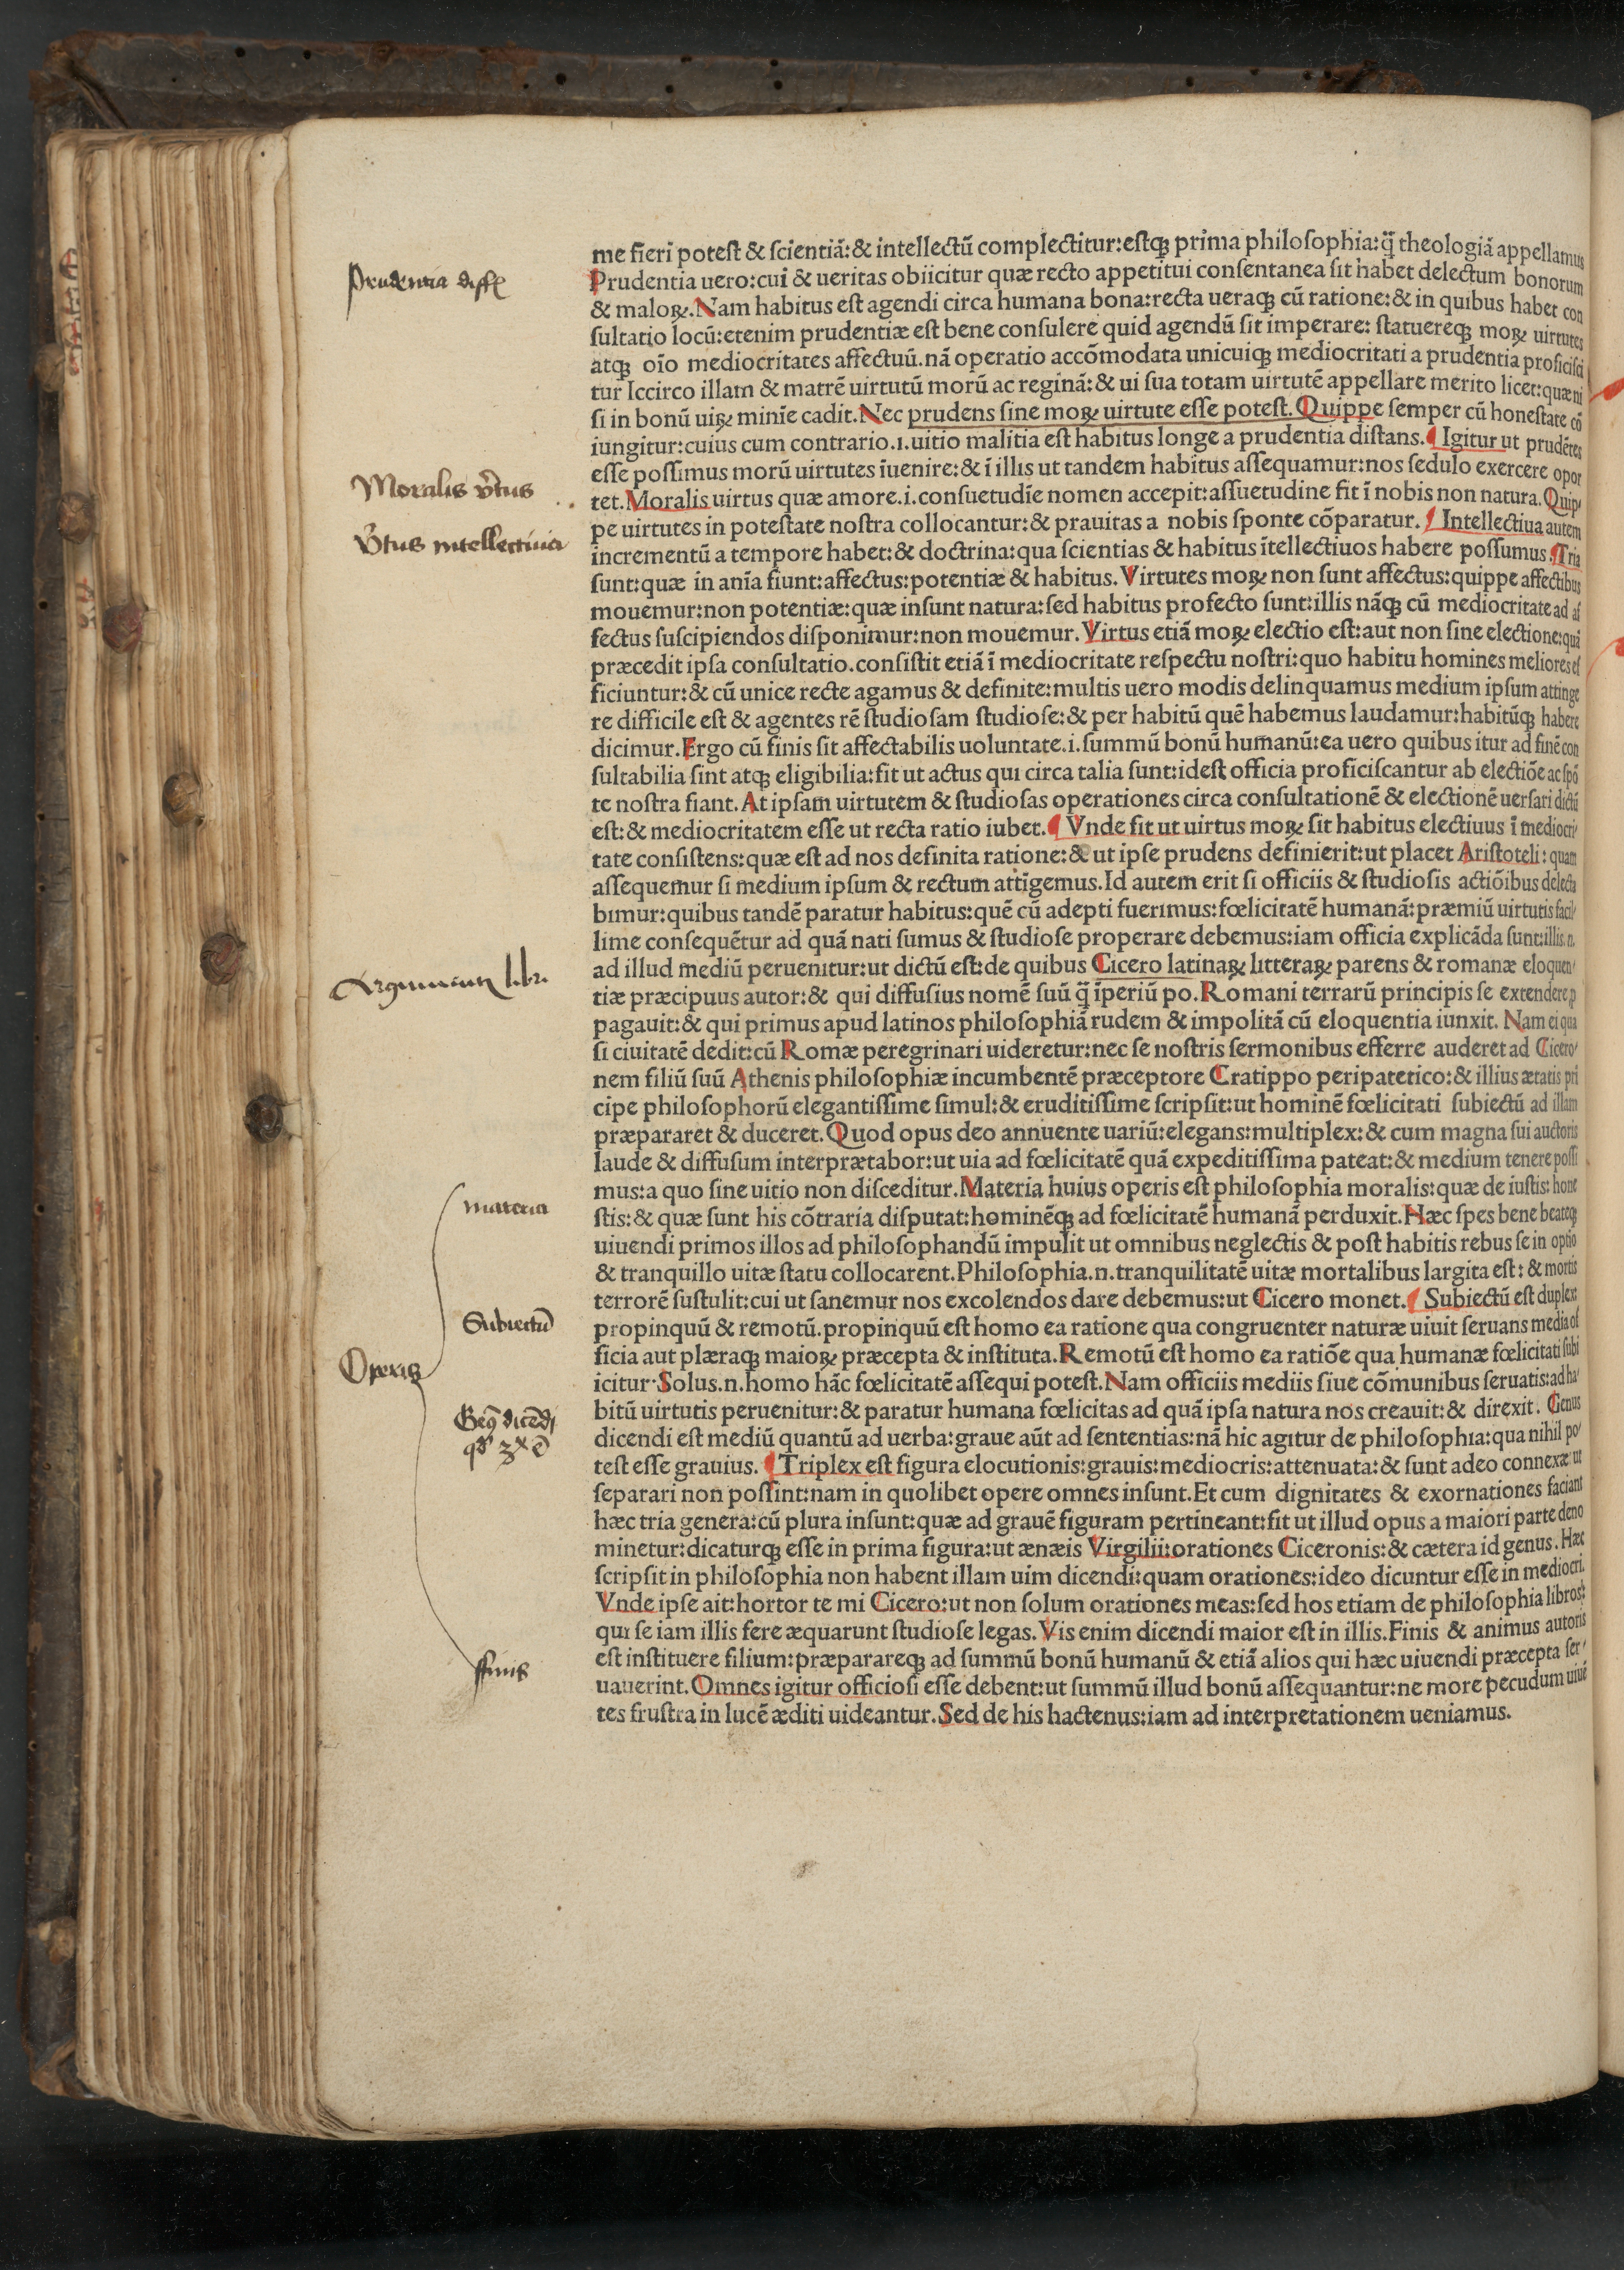 me fieri potest & scientiā: & intellectū complectitur: estqꝫ prima philosophia: q̄ theologiā appellamus
Prudentia uero: cui & ueritas obiicitur quæ recto appetitui consentanea sit habet delectum bonorum
& maloꝝ. Nam habitus est agendi circa humana bona: recta ueraqꝫ cū ratione: & in quibus habet con
sultatio locū: etenim prudentiæ est bene consulere quid agendū sit imperare: statuereqꝫ moꝝ uirtutes
atqꝫ oīo mediocritates affectuū. nā operatio accōmodata unicuiqꝫ mediocritati a prudentia proficisci
tur Iccirco illam & matrē uirtutū morū ac reginā: & ui sua totam uirtutē appellare merito licet: quæ ni
si in bonū uiꝝ minīe cadit. Nec prudens sine moꝝ uirtute esse potest. Quippe semper cū honestate cō
iungitur: cuius cum contrario .i. uitio malitia est habitus longe a prudentia distans. ¶ Igitur ut prudētes
esse possimus morū uirtutes īuenire: & ī illis ut tandem habitus assequamur: nos sedulo exercere opor
tet. Moralis uirtus quæ a more .i. consuetudīe nomen accepit: assuetudine fit ī nobis non natura. Quip⸗
pe uirtutes in potestate nostra collocantur: & prauitas a nobis sponte cōparatur. ¶ Intellectiua autem
incrementū a tempore habet: & doctrina: qua scientias & habitus ītellectiuos habere possumus. ¶ Tria
sunt: quæ in anīa fiunt: affectus: potentiæ & habitus. Virtutes moꝝ non sunt affectus: quippe affectibus
mouemur: non potentiæ: quæ insunt natura: sed habitus profecto sunt: illis nāqꝫ cū mediocritate ad af
fectus suscipiendos disponimur: non mouemur. Virtus etiā moꝝ electio est: aut non sine electione: quā
præcedit ipsa consultatio. consistit etiā ī mediocritate respectu nostri: quo habitu homines meliores ef
ficiuntur: & cū unice recte agamus & definite: multis uero modis delinquamus medium ipsum attinge
re difficile est & agentes rē studiosam studiose: & per habitū quē habemus laudamur: habitūqꝫ habere
dicimur. Ergo cū finis sit affectabilis uoluntate .i. summū bonū humanū: ea uero quibus itur ad finē con
sultabilia sint atqꝫ eligibilia: fit ut actus qui circa talia sunt: idest officia proficiscantur ab electiōe ac spō
te nostra fiant. At ipsam uirtutem & studiosas operationes circa consultationē & electionē uersari dictū
est: & mediocritatem esse ut recta ratio iubet. ¶ Vnde fit ut uirtus moꝝ sit habitus electiuus ī mediocri⸗
tate consistens: quæ est ad nos definita ratione: & ut ipse prudens definierit: ut placet Aristoteli: quam
assequemur si medium ipsum & rectum attīgemus. Id autem erit si officiis & studiosis actiōibus delecta
bimur: quibus tandē paratur habitus: quē cū adepti fuerimus: fœlicitatē humanā: præmiū uirtutis facil⸗
lime consequētur ad quā nati sumus & studiose properare debemus: iam officia explicāda sunt: illis .n.
ad illud mediū peruenitur: ut dictū est: de quibus Cicero latinaꝝ litteraꝝ parens & romanæ eloquen⸗
tiæ præcipuus autor: & qui diffusius nomē suū q̄ īperiū po. Romani terrarū principis se extendere p
pagauit: & qui primus apud latinos philosophiā rudem & impolitā cū eloquentia iunxit. Nam ei qua
si ciuitatē dedit: cū Romæ peregrinari uideretur: nec se nostris sermonibus efferre auderet ad Cicero⸗
nem filiū suū Athenis philosophiæ incumbentē præceptore Cratippo peripatetico: & illius ætatis pri
cipe philosophorū elegantissime simul: & eruditissime scripsit: ut hominē fœlicitati subiectū ad illam
præpararet & duceret. Quod opus deo annuente uariū: elegans: multiplex: & cum magna sui auctoris
laude & diffusum interprætabor: ut uia ad fœlicitatē quā expeditissima pateat: & medium tenere possi
mus: a quo sine uitio non disceditur. Materia huius operis est philosophia moralis: quæ de iustis: hone
stis: & quæ sunt his cōtraria disputat: hominēqꝫ ad fœlicitatē humanā perduxit. Hæc spes bene beateqꝫ
uiuendi primos illos ad philosophandū impulit ut omnibus neglectis & post habitis rebus se in optio
& tranquillo uitæ statu collocarent. Philosophia .n. tranquilitatē uitæ mortalibus largita est: & mortis
terrorē sustulit: cui ut sanemur nos excolendos dare debemus: ut Cicero monet. ¶ Subiectū est duplex:
propinquū & remotū. propinquū est homo ea ratione qua congruenter naturæ uiuit seruans media of
ficia aut plæraqꝫ maioꝝ præcepta & instituta. Remotū est homo ea ratiōe qua humanæ fœlicitati subi
icitur. Solus .n. homo hāc fœlicitatē assequi potest. Nam officiis mediis siue cōmunibus seruatis: ad ha⸗
bitū uirtutis peruenitur: & paratur humana fœlicitas ad quā ipsa natura nos creauit: & direxit. Genus
dicendi est mediū quantū ad uerba: graue aūt ad sententias: nā hic agitur de philosophia: qua nihil po⸗
test esse grauius. ¶ Triplex est figura elocutionis: grauis: mediocris: attenuata: & sunt adeo connexæ ut
separari non possint: nam in quolibet opere omnes insunt. Et cum dignitates & exornationes faciant
hæc tria genera: cū plura insunt: quæ ad grauē figuram pertineant: fit ut illud opus a maiori parte deno
minetur: dicaturqꝫ esse in prima figura: ut ænæis Virgilii: orationes Ciceronis: & cætera id genus. Hæc
scripsit in philosophia non habent illam uim dicendi: quam orationes: ideo dicuntur esse in mediocri.
Vnde ipse ait: hortor te mi Cicero: ut non solum orationes meas: sed hos etiam de philosophia libros:
qui se iam illis fere æquarunt studiose legas. Vis enim dicendi maior est in illis. Finis & animus autoris
est instituere filium: præparareqꝫ ad summū bonū humanū & etiā alios qui hæc uiuendi præcepta ser⸗
uauerint. Omnes igitur officiosi esse debent: ut summū illud bonū assequantur: ne more pecudum uiuē
tes frustra in lucē æditi uideantur. Sed de his hactenus: iam ad interpretationem ueniamus.
Prudentia
Moralis v̄tus
V̄tus intellectiua
Argumentū libri
materia
Subiectū
Operis
Gen9 dicēdi
finis